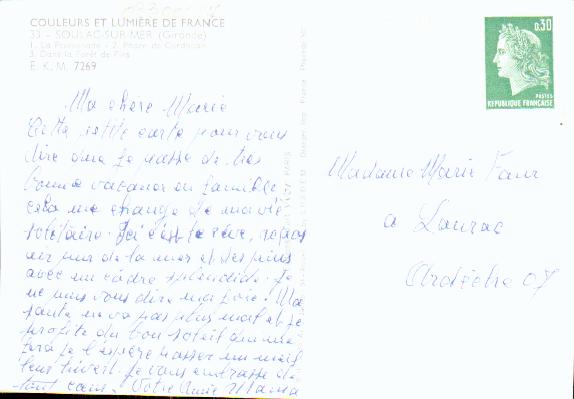 COULEURS ET LUMIÈRE DE FRANCE
33 - SOULAC-SUR-MER (Gironde)
1. La Promenade - 2. Phare de Cordouan
3. Dans la Forêt de Pins
E. K. M. 7269
0,30
POSTES
REPUBLIQUE FRANÇAISE
Ma chère Marie
Cette petite carte pour vous
dire que je passe de très
bonne vacances en famille
cela me change de ma vie
solitaire. Ici c'est le rêve, repos
air pur de la mer et des pins
avec un cadre splendide. Je
ne puis vous dire ma joie. Ma
santé ne va pas plus mal et je
profite du bon soleil qui me
fera je l'espère passer un meil
leur hiver. Je vous embrasse de
tout cœur. Votre Amie
Madame Marie Faur
a Laurac
Ardèche 07